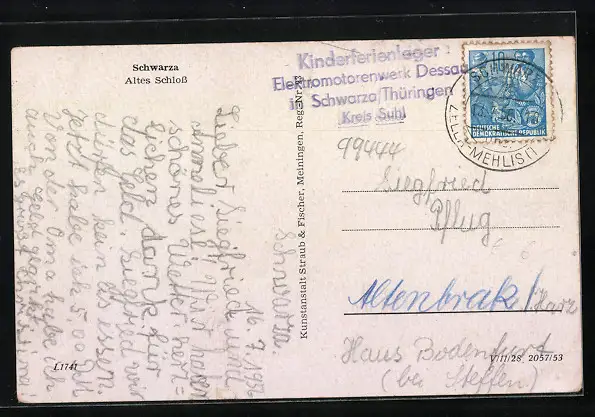 Schwarza
Altes Schloß
Kinderferienlager
Elektromotorenwerk Dessau
in Schwarza/Thüringen
Kreis Suhl
DEUTSCHE
DEMOKRATISCHE REPUBLIK
ZELLA-MEHLIS
99444
Siegfried
Pflug
Altenbrak/Harz
Haus Bodenfurt
(bei Steffen)
Kunstanstalt Straub & Fischer, Meiningen, Reg.-Nr.
Schwarza.
16.7.1956
Lieber Siegfried
schönes Wetter. herz=
lichen dank für
das Geld. Siegfried wir
dürfen kein Eis essen.
Jetzt habe ich 5.00
Von der Oma habe ich
auch
L1741
V/11/28 2057/53